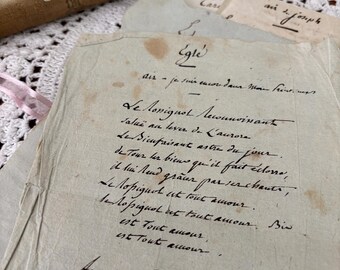 air à Joseph
Eglé
air = je suis encor dans mon
Le Rossignol reconnoissant
salue au lever de l'aurore
Le Bienfaisant astre du jour.
de Tous les biens qu'il fait éclore,
il lui rend grâces par ses chants,
Le Rossignol est tout amour
le Rossignol est tout amour. Bis
est Tout amour.
est Tout amour.